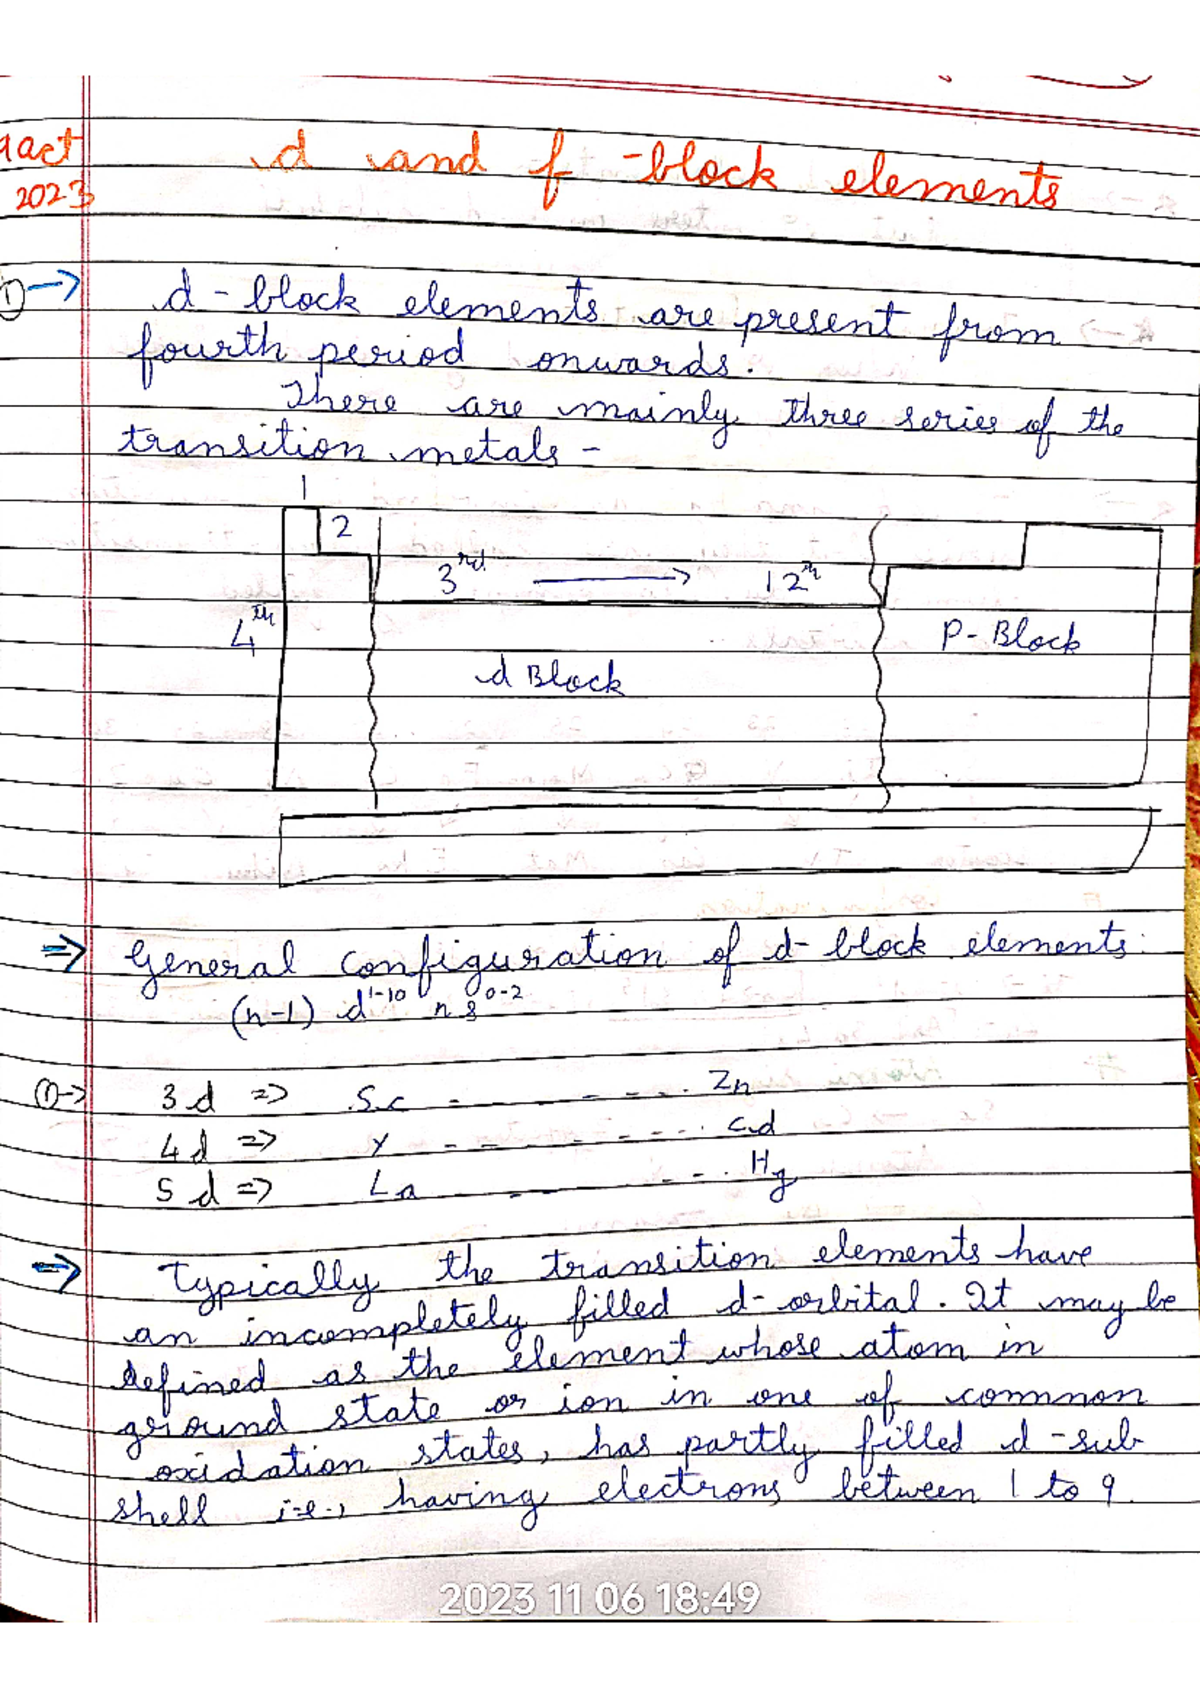 d and f -block elements
2023
①→ d-block elements are present from
fourth period onwards.
There are mainly three series of the
transition metals -
1
2
3rd → 12th
4th
P-Block
d Block
⇒ General configuration of d-block elements:
(n-1) d1-10 ns0-2
①→ 3d => Sc - - - - - - - Zn
4d => Y - - - - - - - - Cd
5d => La - - - - Hg
⇒ Typically the transition elements have
an incompletely filled d-orbital. It may be
defined as the element whose atom in
ground state or ion in one of common
oxidation states, has partly filled d-sub
shell i.e., having electrons between 1 to 9.
2023 11 06 18:49